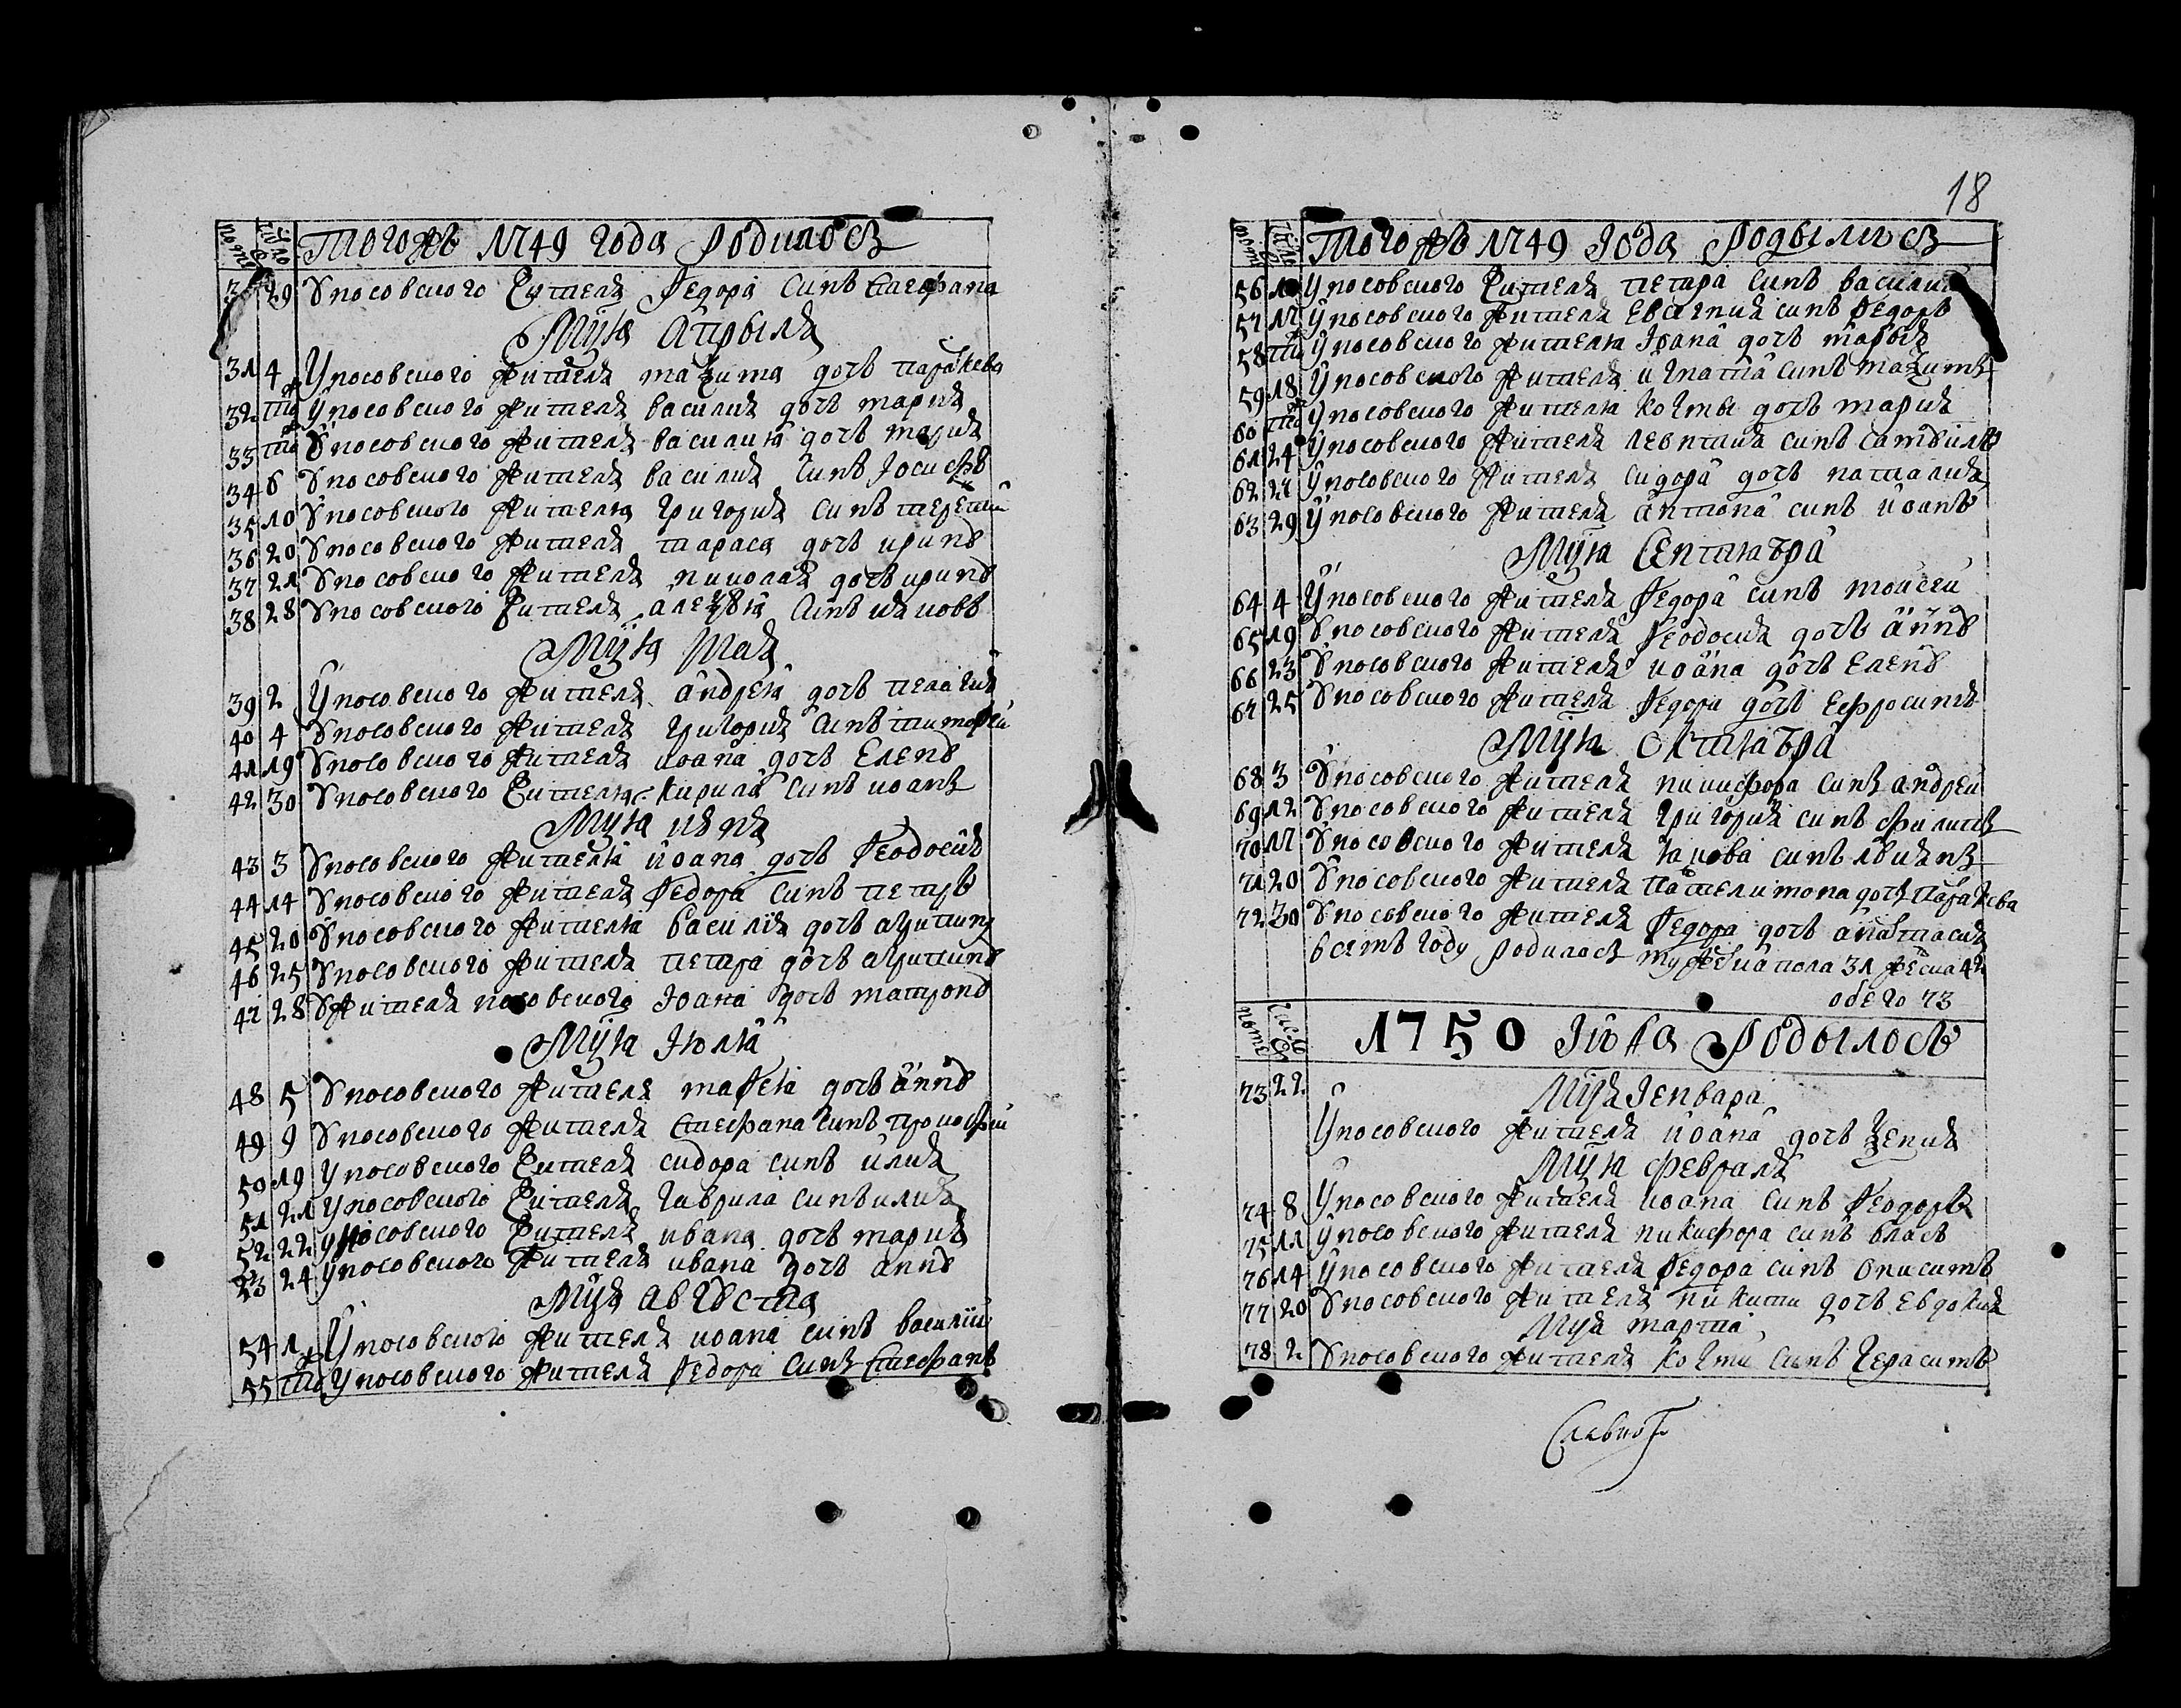 Тогожъ 1749 года родилось
29 У носовского жителя Федора синъ Стефана
Мца Априля
31 4 У носовского жителя маѯима дочъ параскева
32 тиж У носовского жителя василия дочъ мария
33 тиж У носовского жителя василия дочъ мария
34 6 У носовского жителя василия синъ Іосифъ
35 10 У носовского жителя григория синъ терентий
36 20 У носовского жителя тараса дочъ иринѣ
37 21 У носовского жителя николая дочъ иринѣ
38 28 У носовского жителя алеѯѣя синъ яковъ
Мця Мая
39 2 У носовского жителя андрея дочъ пелагия
40 4 У носовского жителя григория синъ тимофей
41 19 У носовского жителя иоана дочъ Еленѣ
42 30 У носовского жителя кирила синъ иоанъ
Мця июня
43 3 У носовского жителя иоана дочъ Феодосия
44 14 У носовского жителя Федора синъ петръ
45 20 У носовского жителя василия дочъ агрипину
46 25 У носовского жителя петра дочъ агрипинѣ
47 28 У жителя носовского Іоана дочъ матронѣ
Мця Июля
48 5 У носовского жителя мафея дочъ аннѣ
49 9 У носовского жителя Стефана синъ прокофий
50 19 У носовского жителя сидора синъ илия
51 21 У носовского жителя гаврила синъ илия
52 22 У носовского жителя ивана дочъ мария
53 24 У носовского жителя ивана дочъ аннѣ
Мця августа
54 1 У носовского жителя иоана синъ василий
55 тиж У носовского жителя Федора синъ Стефанъ
18
Тогожъ 1749 Года родылись
56 10 У носовского жителя петра синъ васили
57 17 У носовского жителя Евсения синъ Федоръ
58 тиж У носовского жителя Іоана дочъ марья
59 18 У носовского жителя игната синъ маѯимъ
60 тиж У носовского жителя козмы дочъ мария
61 24 У носовского жителя леонтия синъ самѣило
62 27 У носовского жителя сидора дочъ наталия
63 29 У носовского жителя антона синъ иоанъ
Мця Септября
64 4 У носовского жителя Федора синъ моисей
65 19 У носовского жителя Феодосия дочъ аннѣ
66 23 У носовского жителя иоана дочъ Еленѣ
67 25 У носовского жителя Федора дочъ Ефросимѣ
Мця октября
68 3 У носовского жителя никифора синъ андрей
69 12 У носовского жителя григория синъ филипъ
70 17 У носовского жителя якова синъ лѣкянъ
71 20 У носовского жителя пателимона дочъ параскева
72 30 У носовского жителя Федора дочъ анастасия
в семъ году родилось мужеска пола 31 женска 42
обего 73
1750 Года родылось
73 22 Мця Іенвара
У носовского жителя иоана дочъ ѯения
Мця февраля
74 8 У носовского жителя иоана синъ Феодоръ
75 11 У носовского жителя никифора синъ власъ
76 14 У носовского жителя Федора синъ Онисимъ
77 20 У носовского жителя никити дочъ Евдокия
Мця марта
78 2 У носовского жителя козми синъ Герасимъ